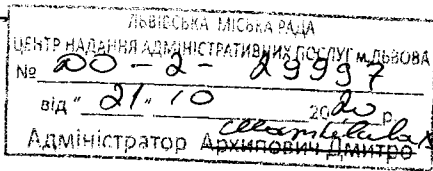 ЛЬВІВСЬКА МІСЬКА РАДА
ЦЕНТР НАДАННЯ АДМІНІСТРАТИВНИХ ПОСЛУГ м.ЛЬВОВА
№ DO-2-29997
від "21" 10 2020 р.
Адміністратор Архипович Дмитро